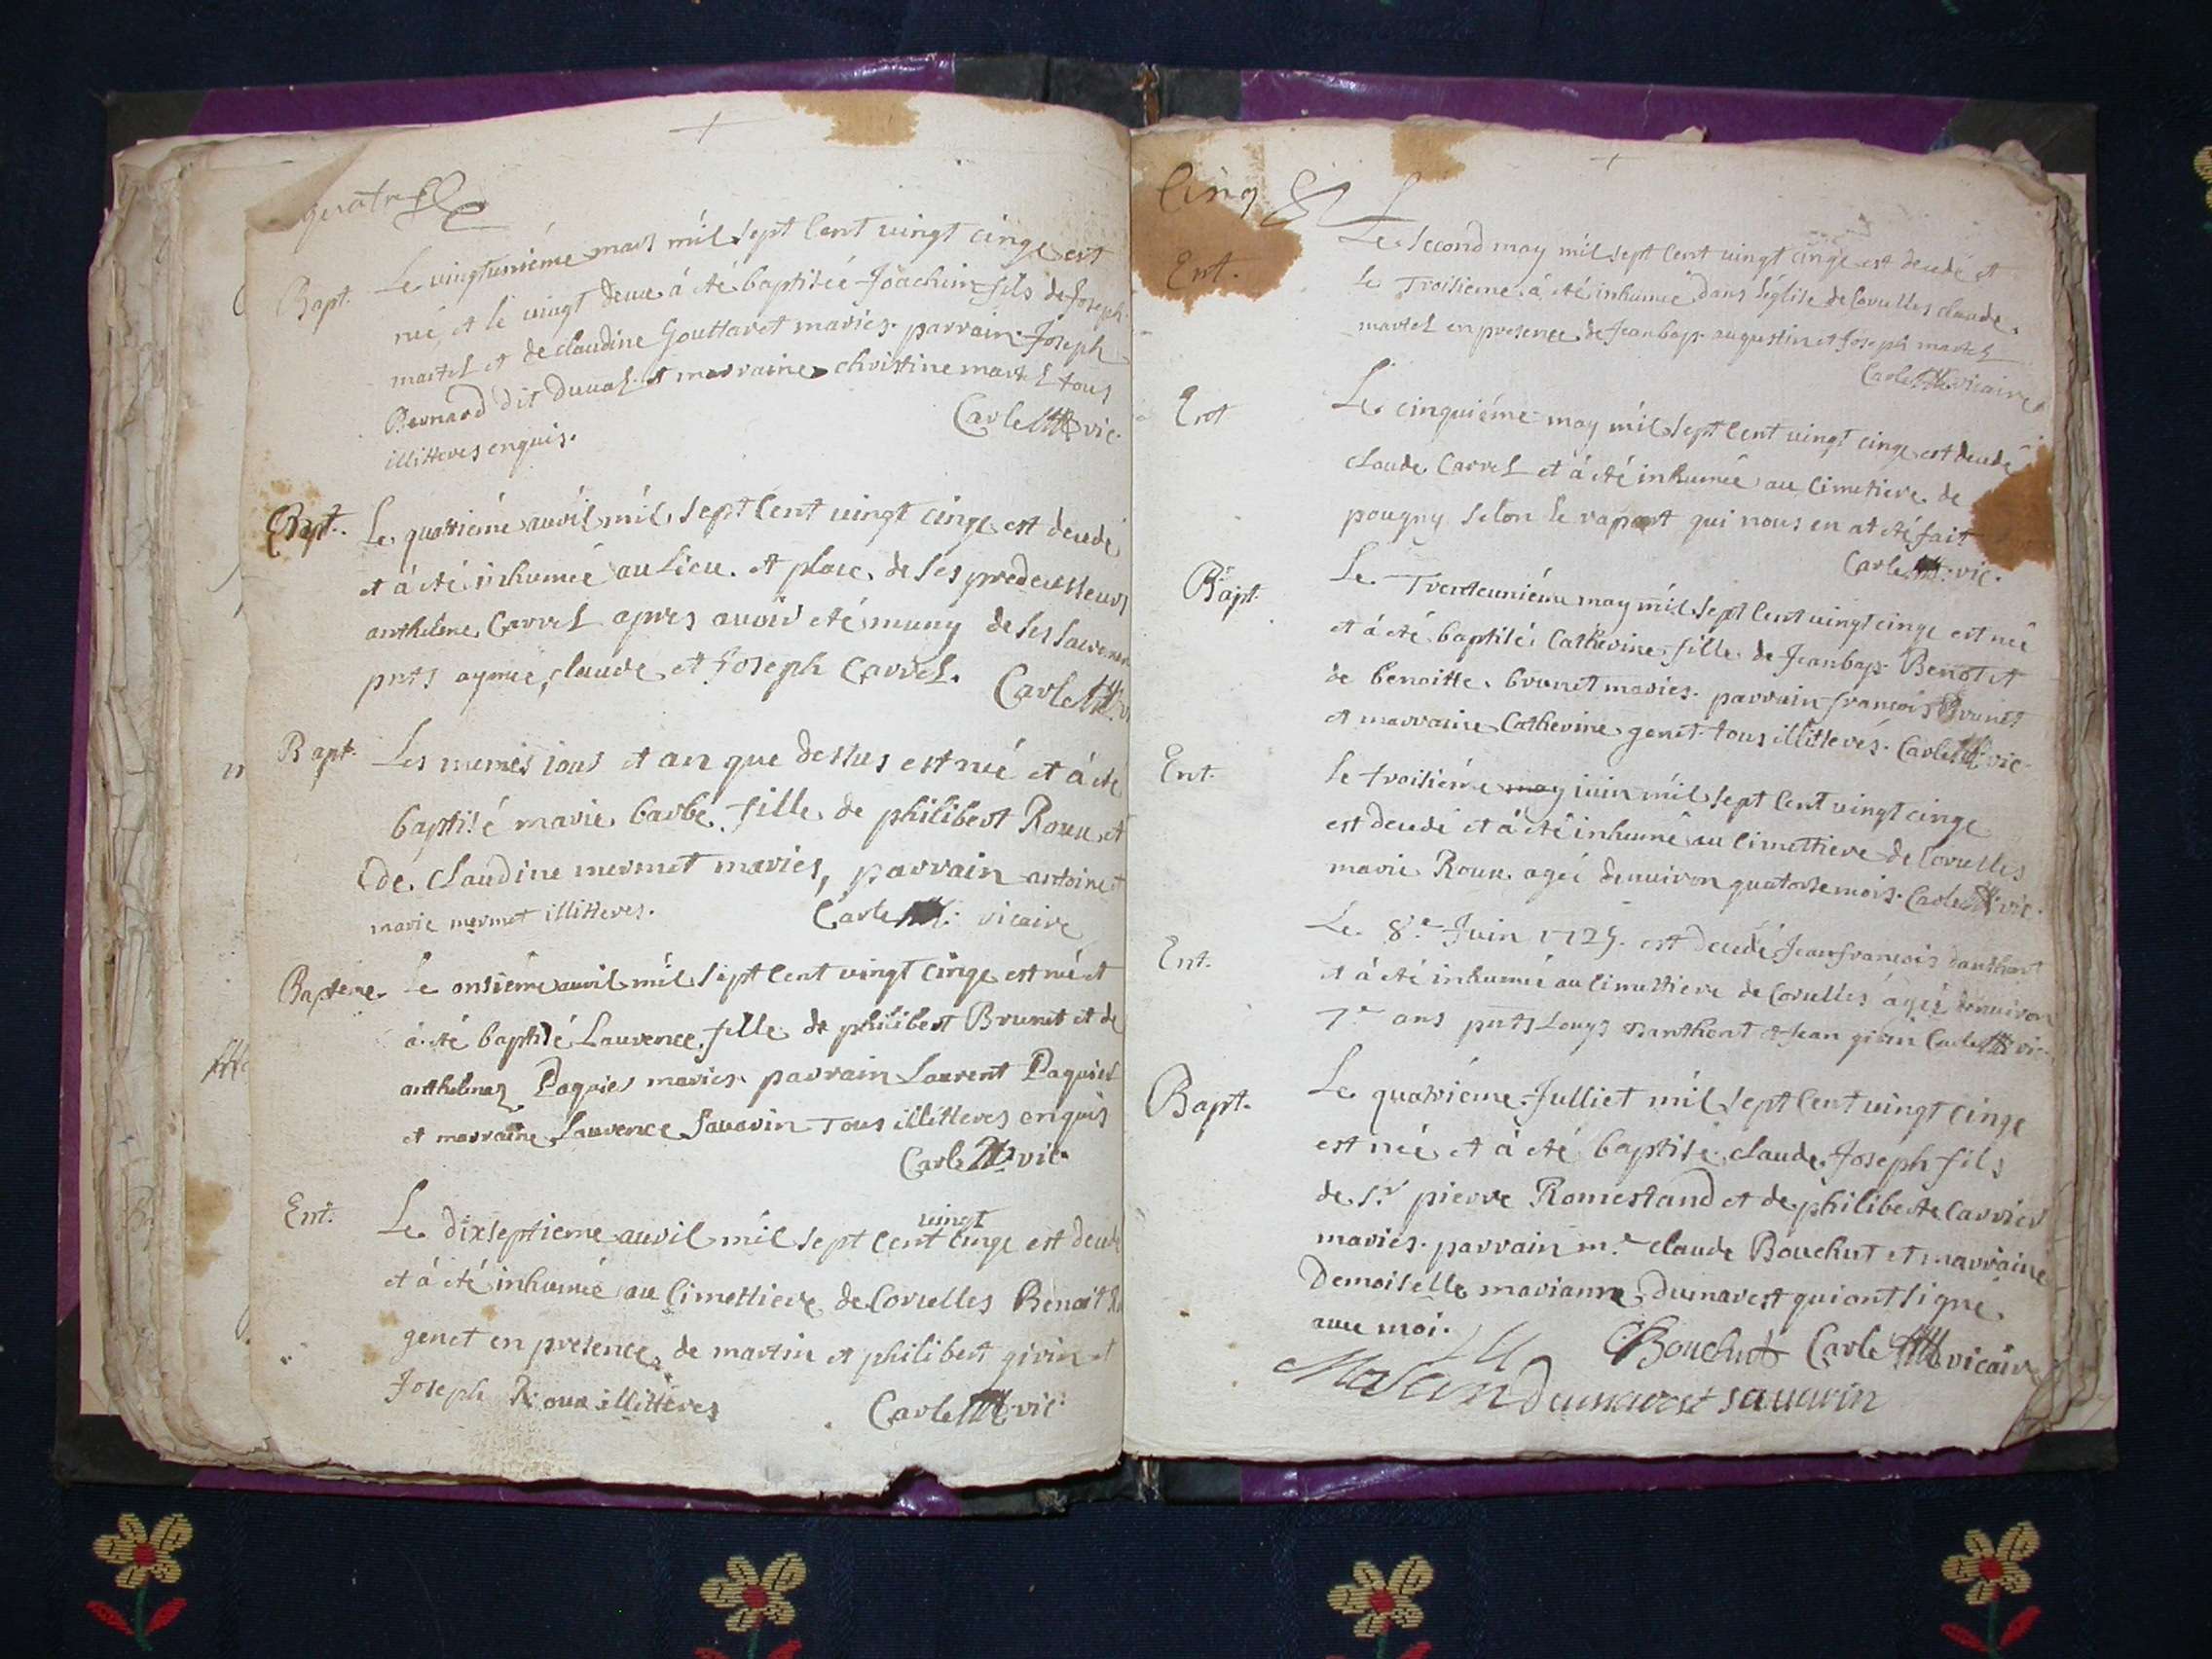 quatre
Bapt. Le vingtunième mars mil sept cent vingt cinqe est
né, et le vingt deux á été baptiséé Joachim fils de Joseph
martel et de claudine Gouttaret mariés. parrain Joseph
Bernard dit duual et marraine christine martel tous
illitteres enquis. Carle vic.
Bapt. Le quatriéme auvil mil sept cent vingt cinqe est decedé
et á été inhumée au lieu et place de ses predecesseurs
anthelme Carrel apres avoir été muny de ses sacremen
pnts aymé, claude et Joseph Carrel. Carle
Bapt. Les memes iour et an que dessus est née et á été
baptisé marie barbe fille de philibert Roux et
de claudine mermet mariés, parrain antoine et
marie mermet illitteres. Carle vicaire
Bapteme Le onsiéme auvil mil sept cent vingt cinqe est née et
á été baptisé Laurence fille de philibert Brunet et de
anthelmaz Paquier mariés parrain Laurent Paquiel
et marraine Laurence Sauarin Tous illitteres enquis
Carle vic.
Ent. Le dixseptieme auvil mil sept cent vingt cinqe est decedé
et á été inhumée au cimettiere de Corcelles Benoit
genet en presence de martin et philibert girin et
Joseph Roux illitteres Carle vic.
Cinq
Ent. Le second may mil sept cent vingt cinqe est decedé et
le Troisieme á été inhumée dans l'église de Corcelles claude
martel en presence de Jean bap. augustin et Joseph martel
Carle vicaire
Ent Le cinquiéme may mil sept cent vingt cinqe est decedé
claude Carrel et á été inhumée au cimetiere de
pougny selon le raport qui nous en at été fait
Carle vic.
Bapt. Le Trenteuniéme may mil sept cent vingt cinqe est née
et á été baptisé Catherine fille de Jean bap. Benot et
de benoitte brunet mariés. parrain françois Brunet
et marraine Catherine genet tous illitterés. Carle vic.
Ent. le troisiéme may iuin mil sept cent vingt cinqe
est decedé et á été inhumé au cimettiere de Corcelles
marie Roux agée denuiron quatorse mois. Carle vic.
Ent. Le 8.e Juin 1725. est decedé Jean françois danthont
et á été inhumée au cimettiere de Corcelles ágés denuiron
7.e ans pnts Louys danthont et Jean girin Carle vic.
Bapt. Le quatriéme Julliet mil sept cent vingt cinqe
est née et á été baptisé claude Joseph fils
de s.r pierre Romestand et de philiberte Carrier
mariés. parrain m.e claude Bouchut et marraine
Demoiselle marianne dumarest qui ont signé
auec moi. CBouchut Carle vicaire
dumarest sauarin